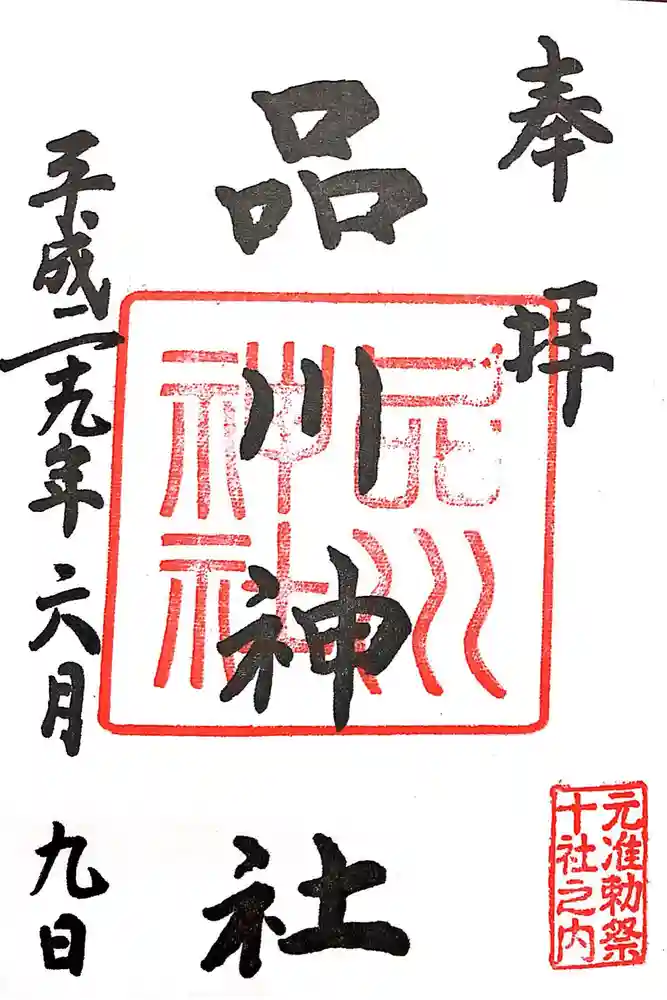 奉拝
元准勅祭
十社之内
品川神社
品川
神社
平成二十九年六月九日